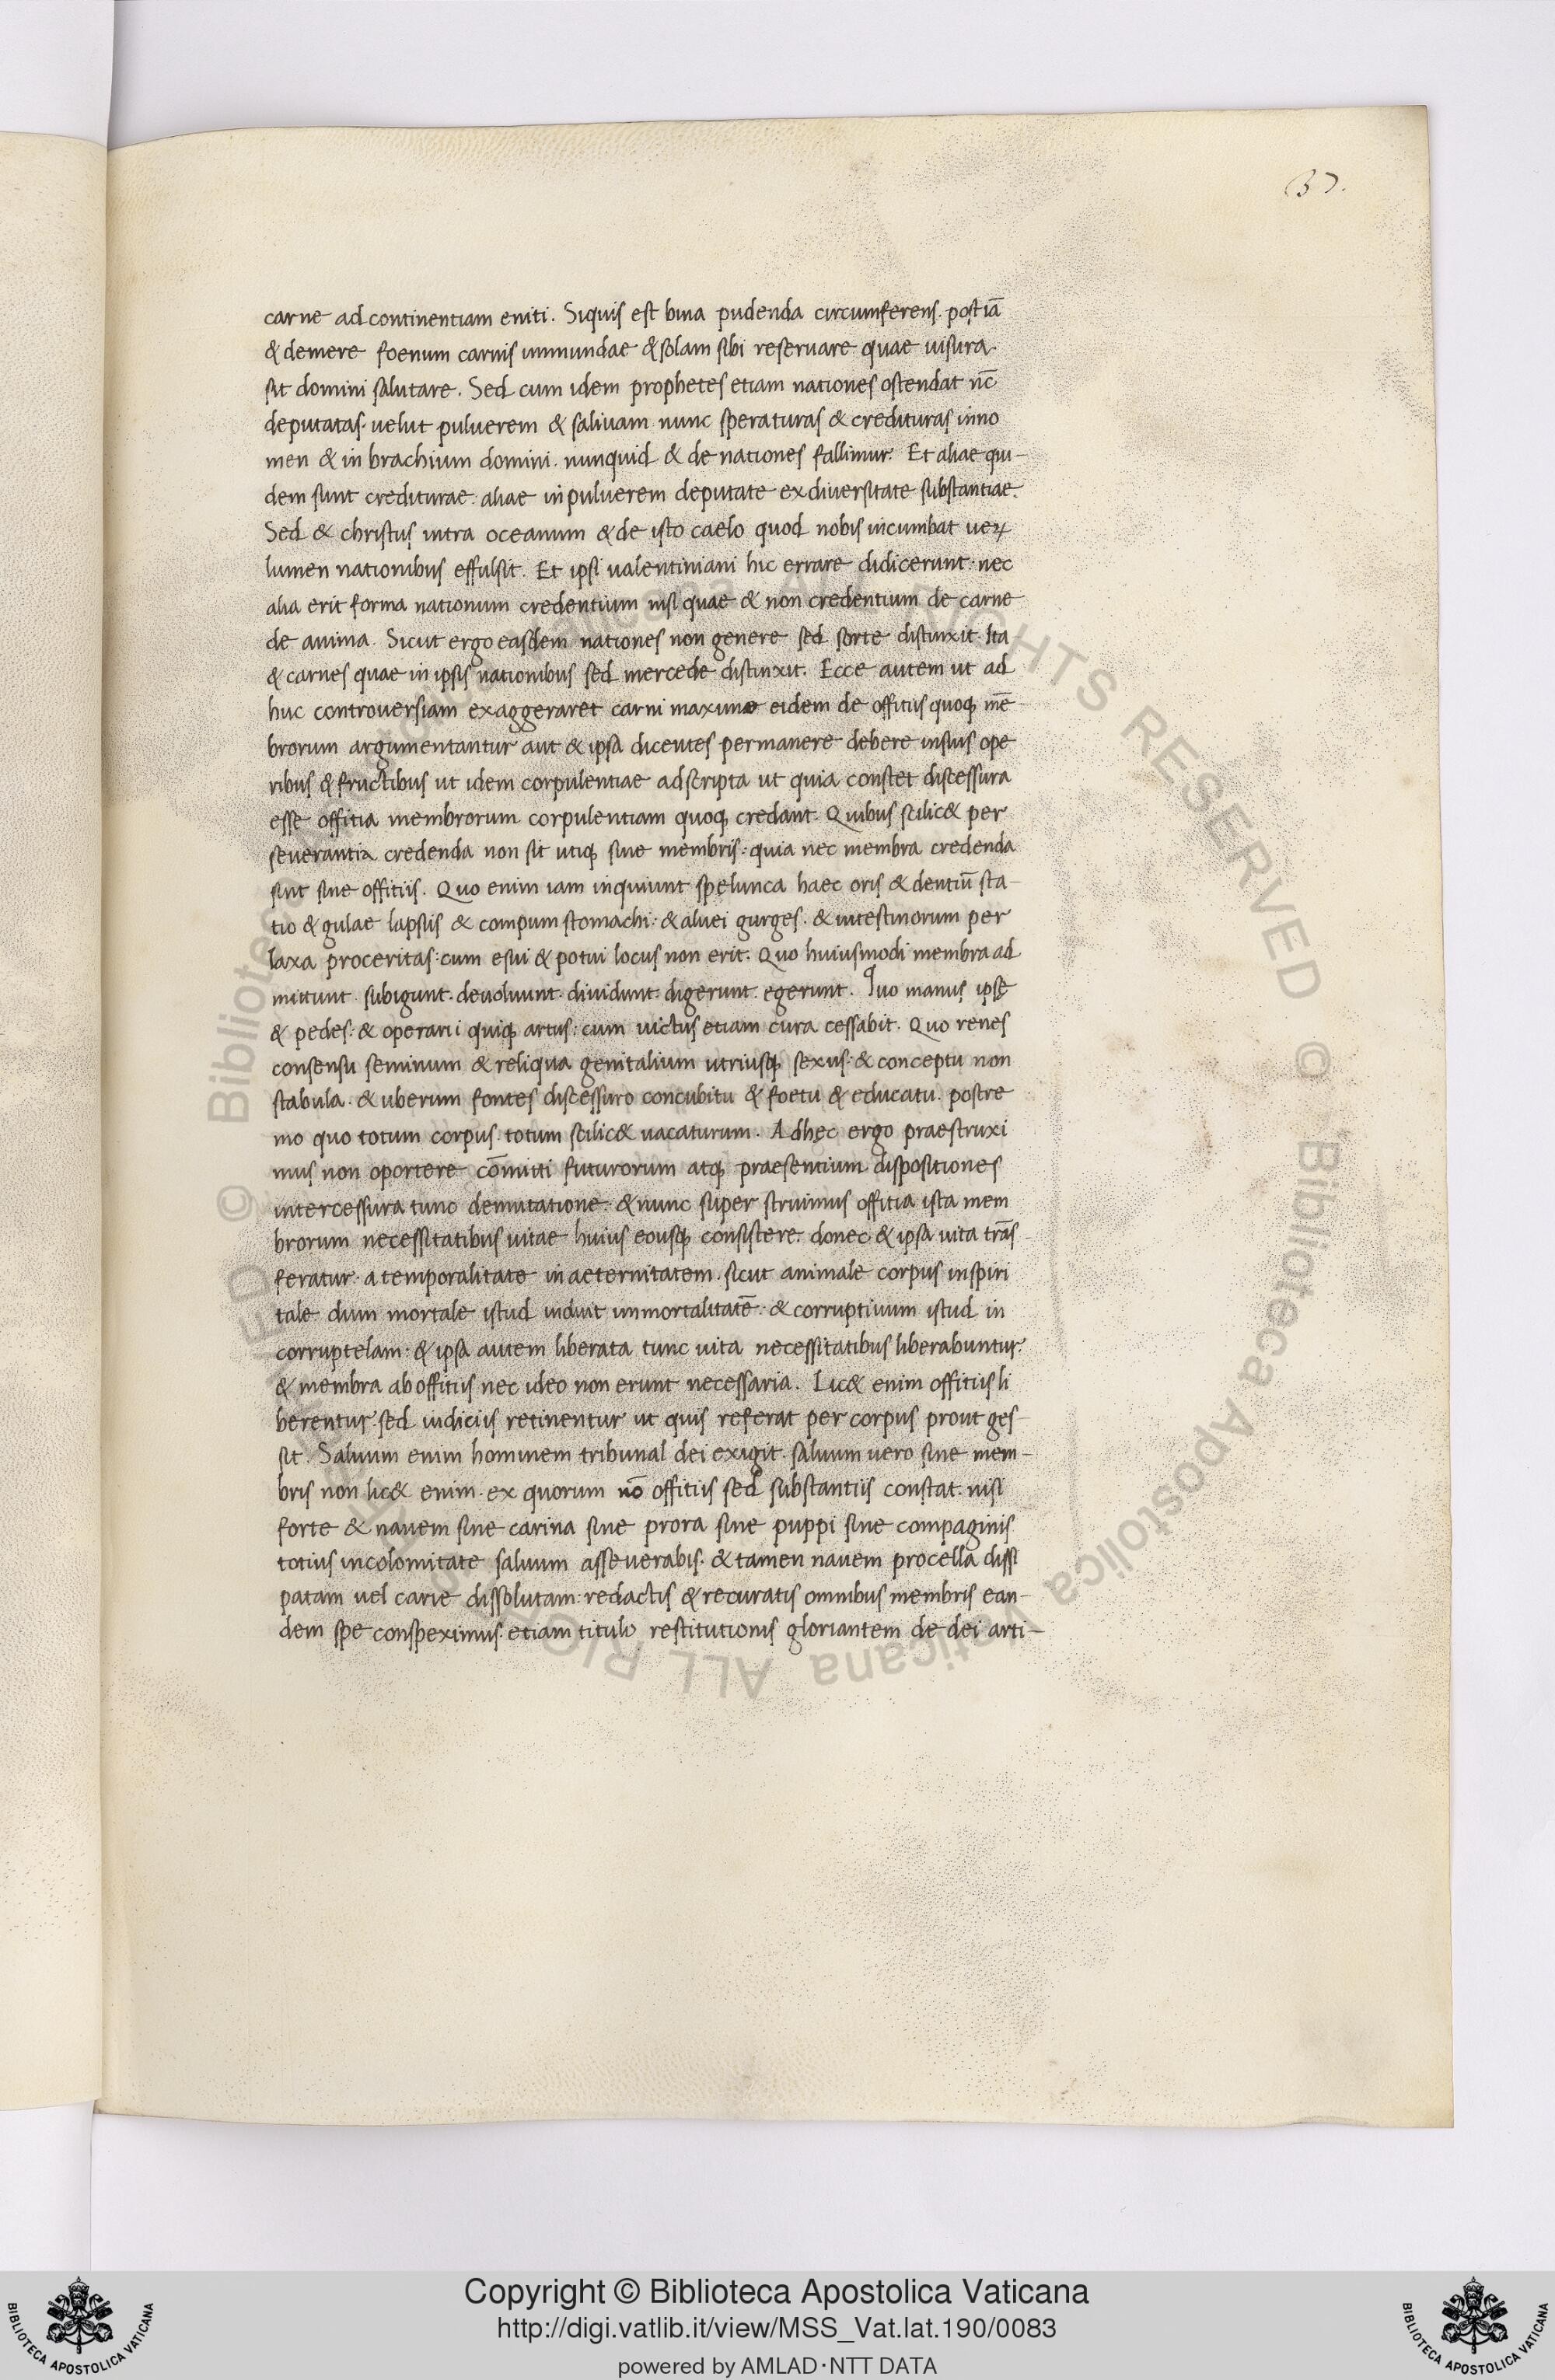 37.
carne ad continentiam eniti. Siquis est bina pudenda circumferens. postiā
& demere foenum carnis immundae & solam sibi reseruare quae uisura.
sit domini salutare. Sed cum idem prophetes etiam nationes ostendat nc̄
deputatas. uelut puluerem & saliuam nunc speraturas & credituras inno
men & in brachium domini. nunquid & de nationes fallimur. Et aliae qui-
dem sunt crediturae. aliae in puluerem deputate ex diuersitate substantiae.
Sed & christus intra oceanum & de isto caelo quod nobis incumbat ueꝝ
lumen nationibus effulsit. Et ipsi ualentiniani hic errare didicerunt: nec
alia erit forma nationum credentium nisi quae & non credentium de carne
de anima. Sicut ergo easdem nationes non genere sed sorte distinxit. Ita
& carnes quae in ipsis nationibus sed mercede distinxit. Ecce autem ut ad
huc controuersiam exaggeraret carni maxime eidem de offitiis quoqꝫ mē
brorum argumentantur aut & ipsa dicentes permanere debere in suis ope
ribus & fructibus ut idem corpulentiae adscripta ut quia constet discessura
esse offitia membrorum corpulentiam quoqꝫ credant. Quibus scilic& per
seuerantia credenda non sit utiqꝫ sine membris: quia nec membra credenda
sint sine offitiis. Quo enim iam inquiunt spelunca haec oris & dentiū sta-
tio & gulae lapsus & compum stomachi: & aluei gurges. & intestinorum per
laxa proceritas: cum esui & potui locus non erit. Quo huiusmodi membra ad
mittunt. subigunt. deuoluunt. diuidunt. digerunt. egerunt. Quo manus ipsę
& pedes: & operarii quiqꝫ artus: cum uictus etiam cura cessabit. Quo renes
consensu seminum & reliqua genitalium utriusqꝫ sexus: & conceptu non
stabula. & uberum fontes discessuro concubitu & foetu & educatu. postre
mo quo totum corpus. totum scilic& uacaturum. Adhęc ergo praestruxi
mus non oportere cōmitti futurorum atqꝫ praesentium dispositiones
intercessura tunc demutatione: & nunc super struimus offitia ista mem
brorum necessitatibus uitae huius eousqꝫ consistere: donec & ipsa uita trās
feratur. a temporalitate in aeternitatem. sicut animale corpus inspiri
tale dum mortale istud induit immortalitatē: & corruptiuum istud in
corruptelam: & ipsa autem liberata tunc uita necessitatibus liberabuntur:
& membra ab offitiis nec ideo non erunt necessaria. Lic& enim offitiis li
berentur. sed iudiciis retinentur ut quis referat per corpus prout ges-
sit. Saluum enim hominem tribunal dei exigit. saluum uero sine mem-
bris non lic& enim. ex quorum nō offitiis sed substantiis constat. nisi
forte & nauem sine carina sine prora sine puppi sine compaginis
totius incolomitate saluum asseuerabis. & tamen nauem procella dissi
patam uel carie dissolutam: redactis & recuratis omnibus membris ean-
dem spe conspeximus. etiam titulo restitutionis gloriantem de dei arti-
© Biblioteca Apostolica Vaticana ALL RIGHTS RESERVED © Biblioteca Apostolica Vaticana ALL RIGHTS RESERVED
Copyright © Biblioteca Apostolica Vaticana
http://digi.vatlib.it/view/MSS_Vat.lat.190/0083
powered by AMLAD·NTT DATA
BIBLIOTECA APOSTOLICA VATICANA
BIBLIOTECA APOSTOLICA VATICANA